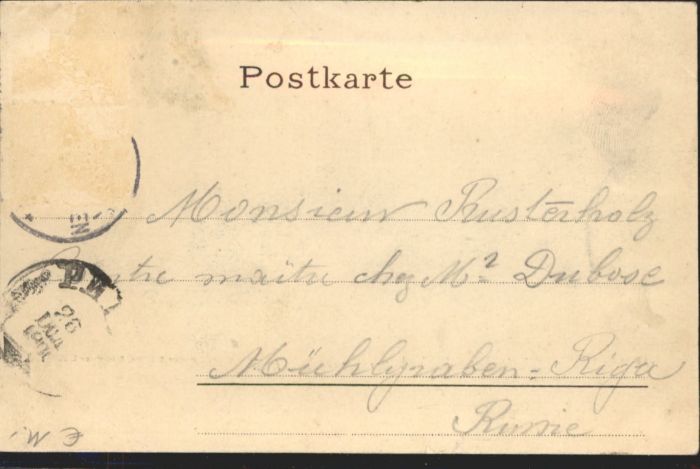 Postkarte
Monsieur Rusterholz
Contre maître chez Mr Dubosc
Mühlgraben-Riga
Russie